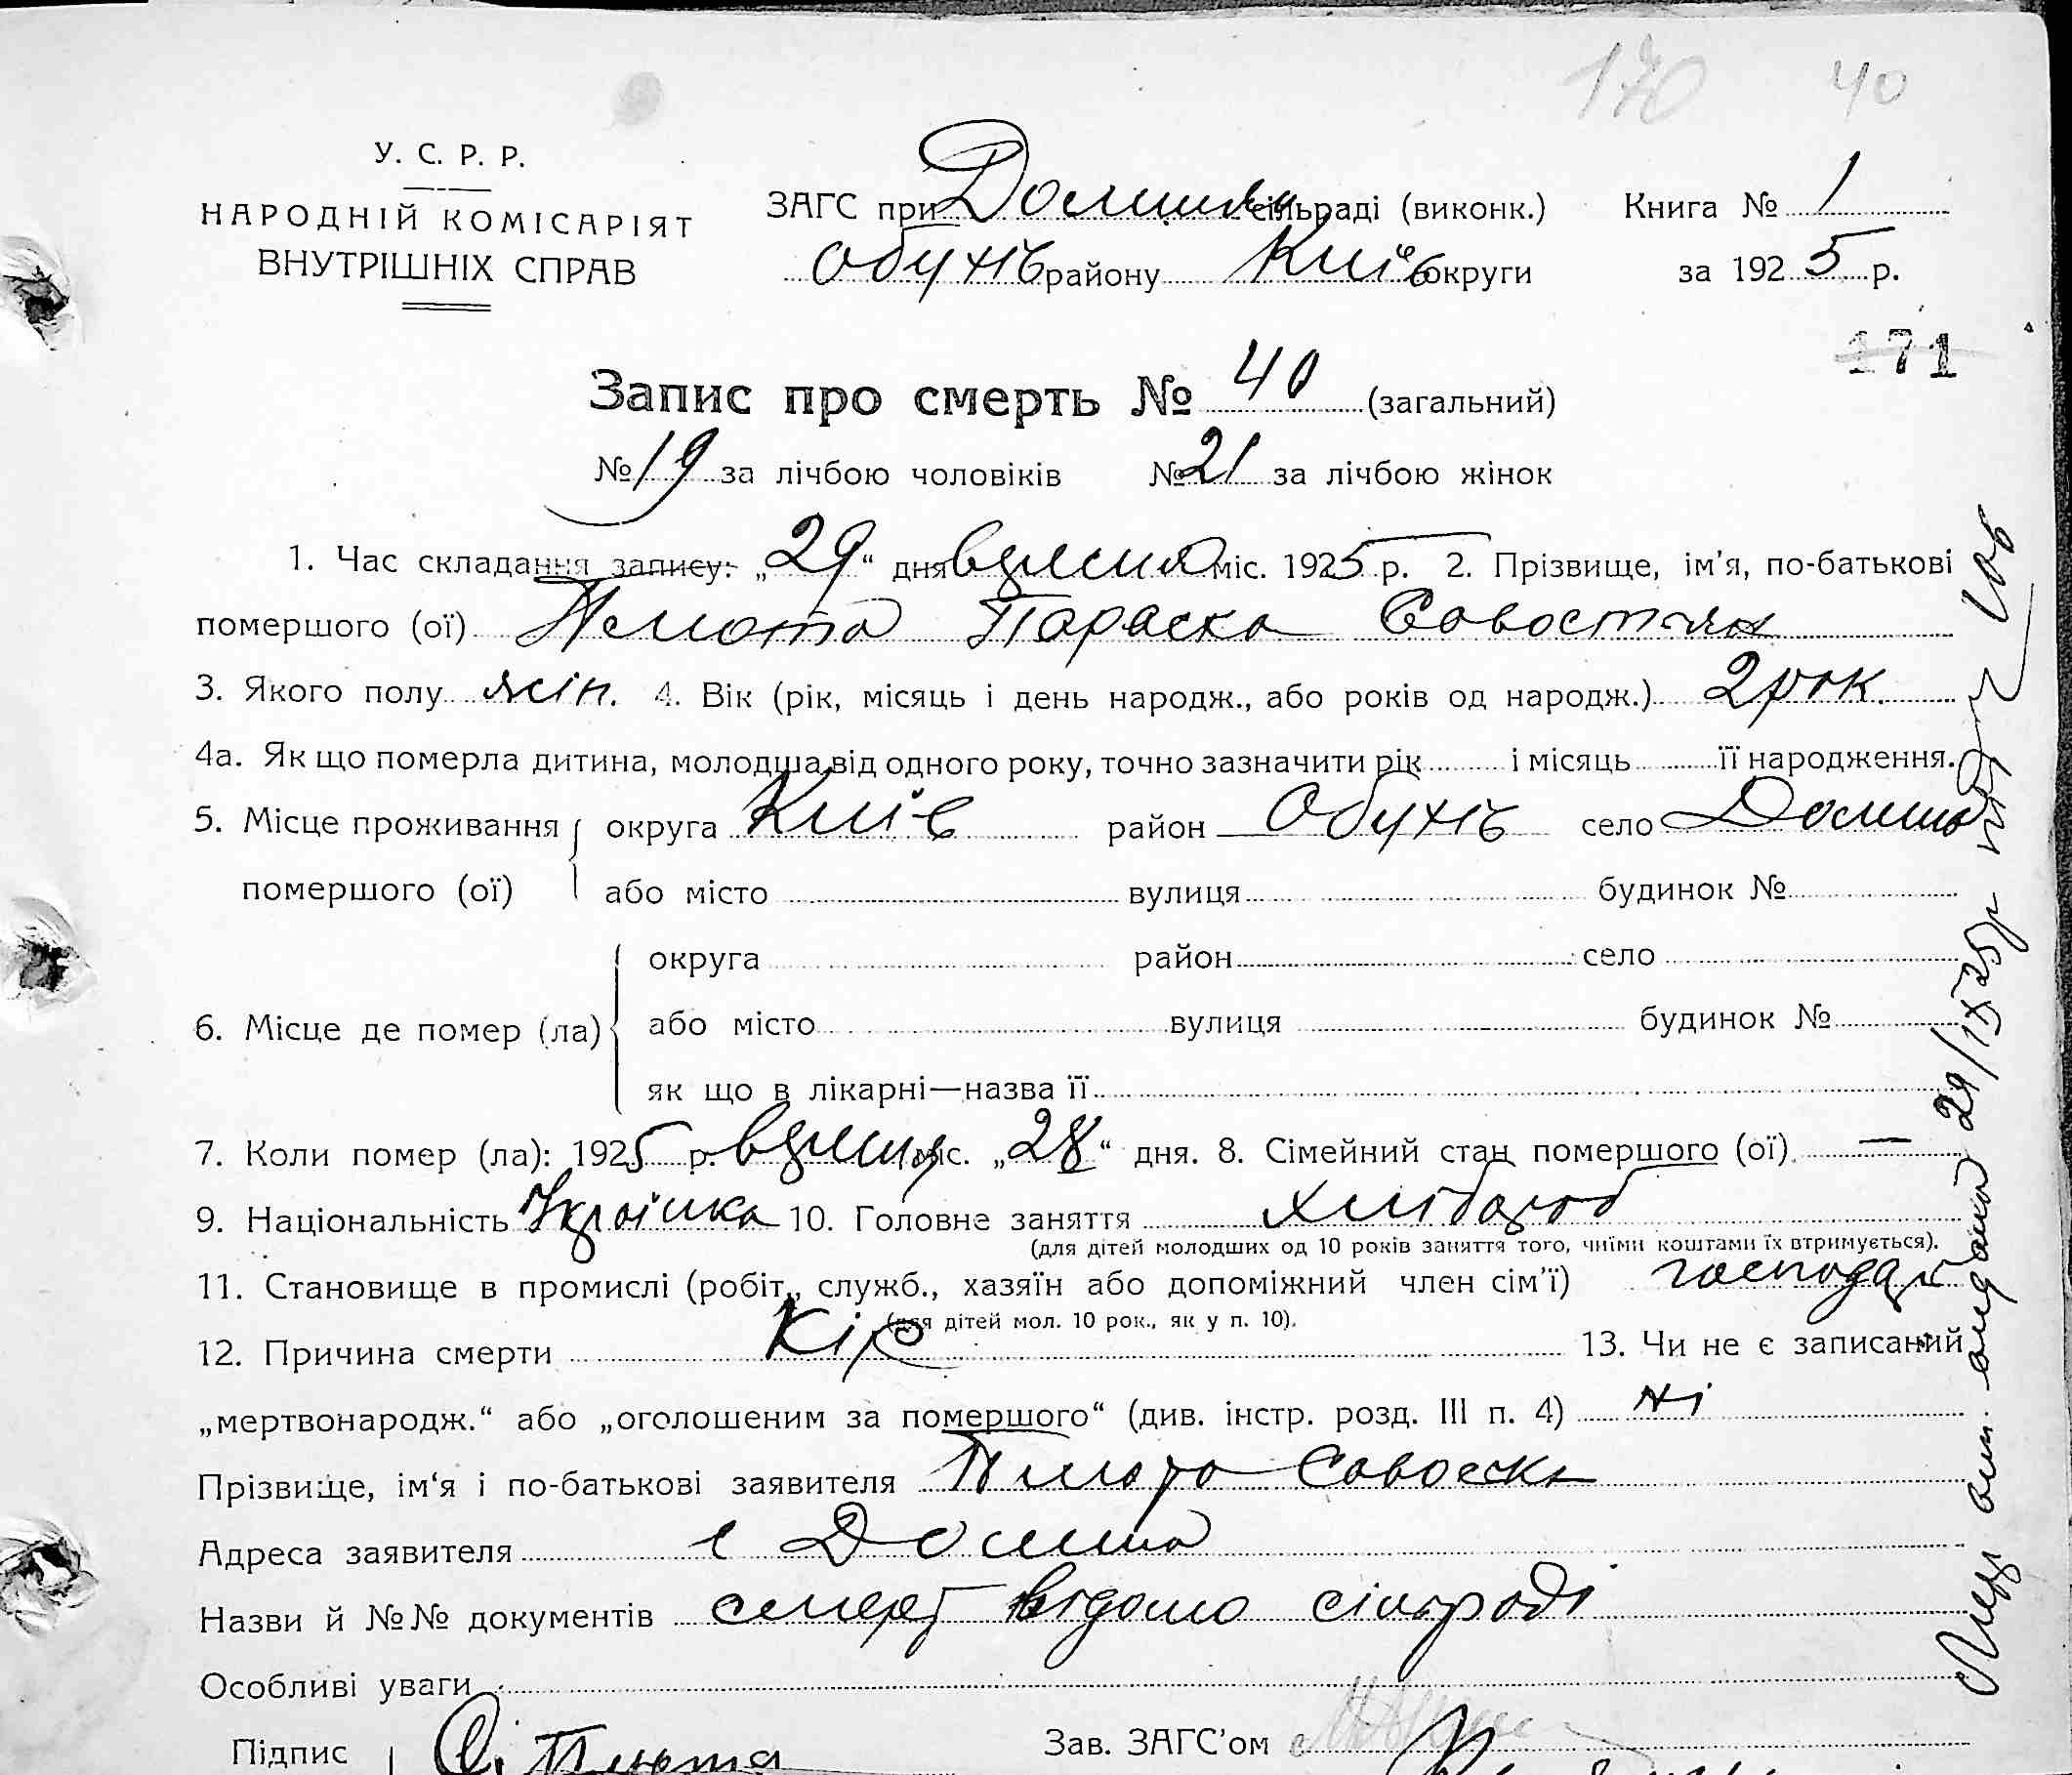 170 40
У. С. Р. Р.
НАРОДНІЙ КОМІСАРІЯТ
ВНУТРІШНІХ СПРАВ
ЗАГС при Долинян сільраді (виконк.) Книга № 1
Обухів району Київ округи за 1925 р.
171
Запис про смерть № 40 (загальний)
№ 19 за лічбою чоловіків № 21 за лічбою жінок
1. Час складання запису: „29“ дня вересня міс. 1925 р. 2. Прізвище, ім'я, по-батькові
помершого (ої) Плюта Параска Совостян
3. Якого полу жін. 4. Вік (рік, місяць і день народж., або років од народж.) 2 рок.
4а. Як що померла дитина, молодша від одного року, точно зазначити рік і місяць її народження.
5. Місце проживання округа Київ район Обухів село Долина
помершого (ої) або місто вулиця будинок №
округа район село
6. Місце де помер (ла) або місто вулиця будинок №
як що в лікарні—назва її
7. Коли помер (ла): 1925 р. вересня міс. „28“ дня. 8. Сімейний стан помершого (ої) —
9. Національність Українка 10. Головне заняття хлібороб
(для дітей молодших од 10 років заняття того, чиїми коштами їх втримується).
11. Становище в промислі (робіт., служб., хазяїн або допоміжний член сім'ї) господар
(для дітей мол. 10 рок., як у п. 10).
12. Причина смерти Кір 13. Чи не є записаний
„мертвонародж.“ або „оголошеним за помершого“ (див. інстр. розд. III п. 4) ні
Прізвище, ім'я і по-батькові заявителя Плюта
Адреса заявителя с Долина
Назви й №№ документів смерт відомо сільраді
Особливі уваги
Підпис Плюта Зав. ЗАГС'ом
29/IX 25 р